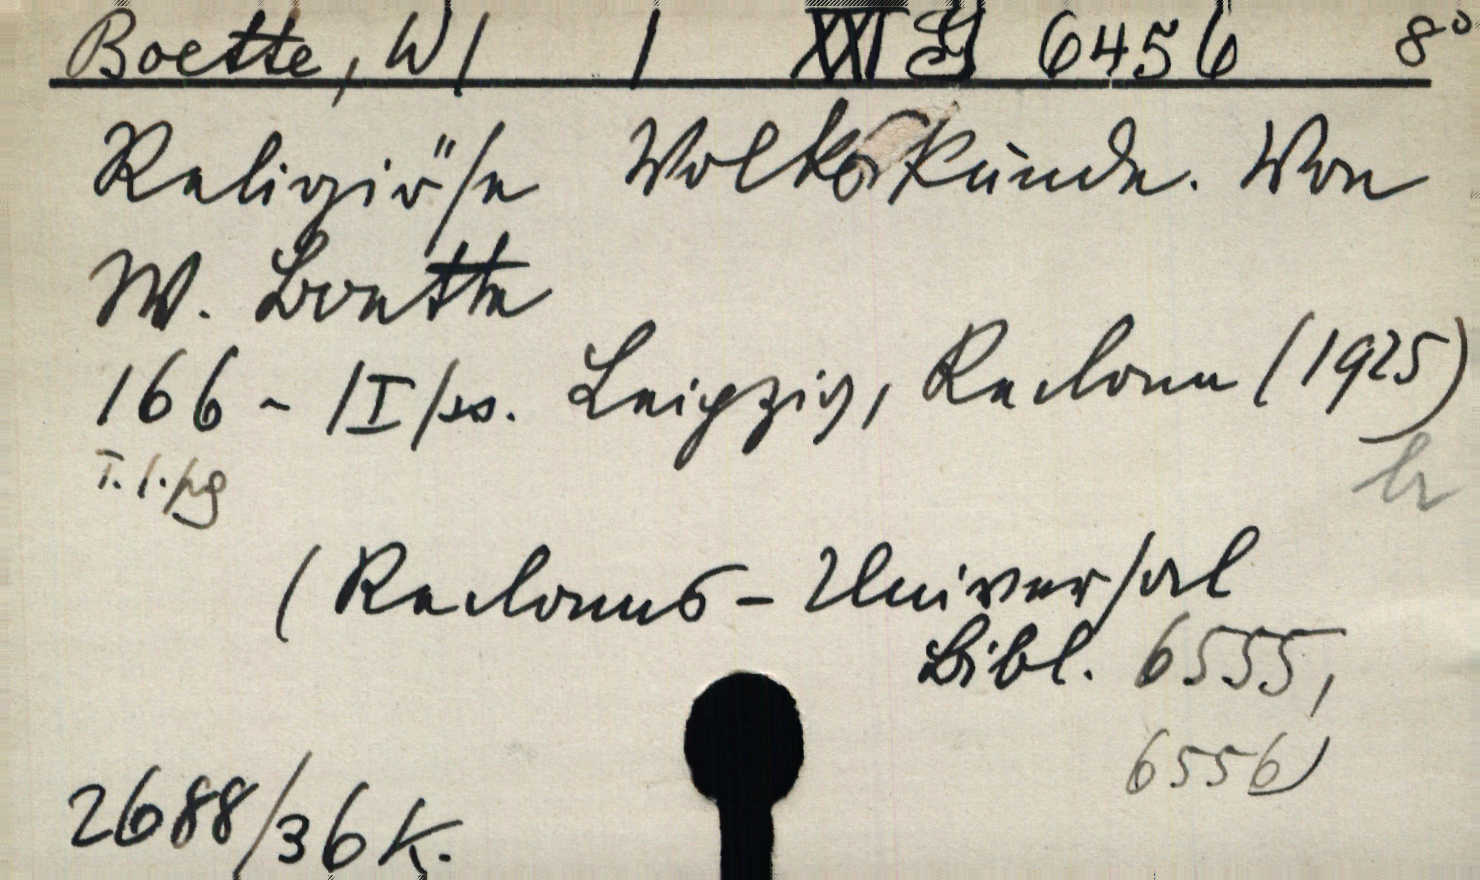 Boette, W| | XXI G 6456 8°
Religiöse Volkskunde. Von
W. Boette
166 - |I| ss. Leipzig, Reclam (1925)
T. 1. pg
(Reclams-Universal
Bibl. 6555,
6556)
2688/36 K.